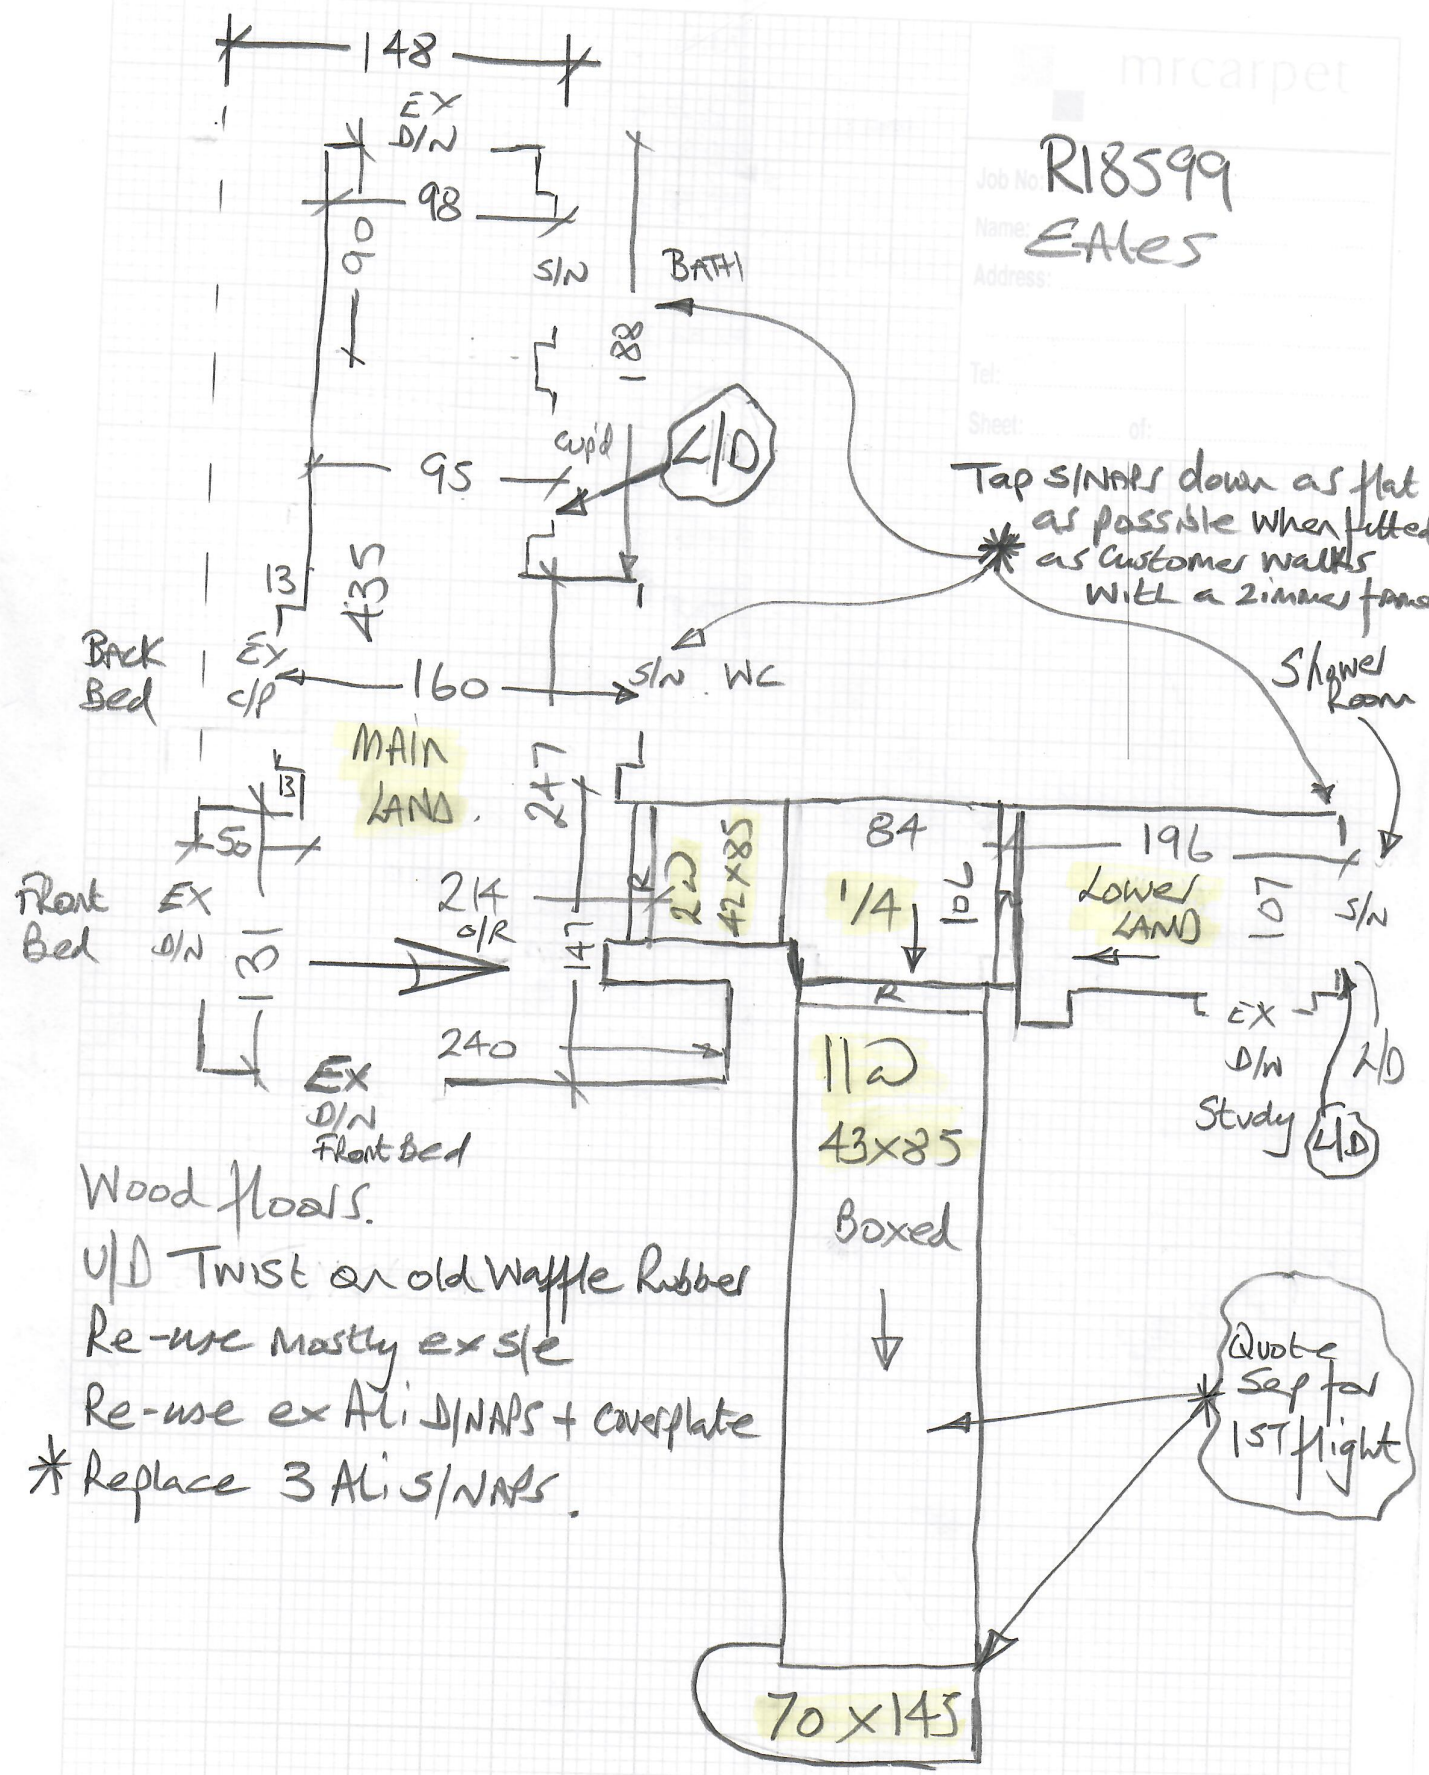 148
EX
D/N
mrcarpet
Job No:
R18599
Name:
EAles
Address:
Tel:
Sheet: of:
98
90
S/N
BATH
188
Cup'd
L/D
95
13
435
Tap S/NAPS down as flat
as possible when fitted
as Customer walks
With a Zimmer frame
Shower
Room
BACK
Bed
EX
C/P
160
S/N WC
MAIN
LAND.
247
13
50
Front
Bed
EX
D/N
131
214
O/R
147
R
2W
42x85
84
1/4
107
196
Lower
LAND
107
S/N
R
240
EX
D/N
Front Bed
11W
43x85
Boxed
EX
D/N
Study
L/D
L/D
Wood floors.
U/D Twist on old Waffle Rubber
Re-use mostly ex s/e
Re-use ex Ali D/NAPS + coverplate
* Replace 3 Ali S/NAPS.
Quote
Sep for
1ST flight
70 x 145